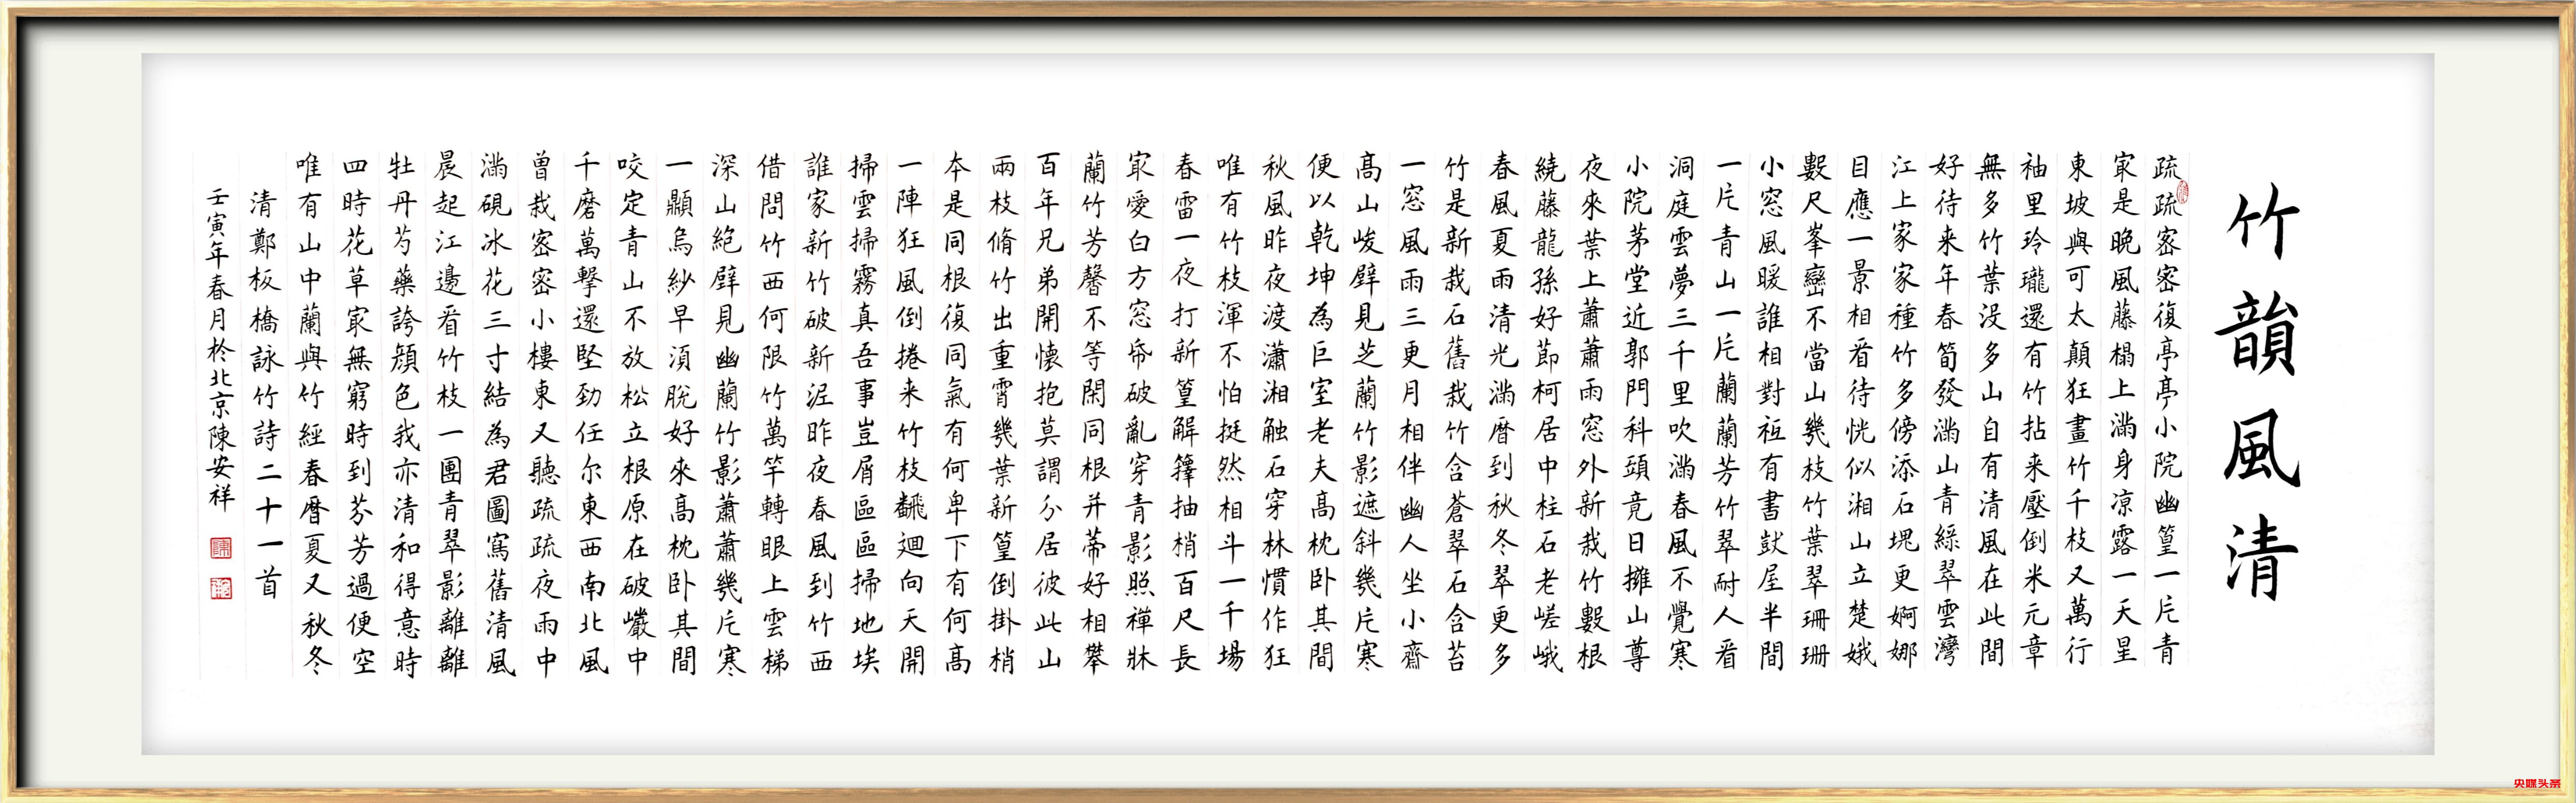 竹韻風清
疏疏密密復亭亭小院幽篁一片青
冣是晚風藤榻上滿身凉露一天星
東坡與可太顛狂畫竹千枝又萬行
袖里玲瓏還有竹拈来壓倒米元章
無多竹葉没多山自有清風在此間
好待来年春筍發滿山青綠翠雲灣
江上家家種竹多傍添石塊更婀娜
目應一景相看待恍似湘山立楚娥
數尺峯巒不當山幾枝竹葉翠珊珊
小窓風暖誰相對袛有書獃屋半間
一片青山一片蘭蘭芳竹翠耐人看
洞庭雲夢三千里吹滿春風不覺寒
小院茅堂近郭門科頭竟日擁山尊
夜來葉上蕭蕭雨窓外新栽竹數根
繞藤龍孫好節柯居中柱石老嵯峨
春風夏雨清光滿曆到秋冬翠更多
竹是新栽石舊栽竹含蒼翠石含苔
一窓風雨三更月相伴幽人坐小齋
高山峻壁見芝蘭竹影遮斜幾片寒
便以乾坤為巨室老夫高枕卧其間
秋風昨夜渡瀟湘触石穿林慣作狂
唯有竹枝渾不怕挺然相斗一千場
春雷一夜打新篁解籜抽梢百尺長
冣愛白方窓帋破亂穿青影照禪牀
蘭竹芳馨不等閑同根并蒂好相攀
百年兄弟開懷抱莫謂分居彼此山
兩枝脩竹出重霄幾葉新篁倒掛梢
本是同根復同氣有何卑下有何高
一陣狂風倒捲来竹枝飜迴向天開
掃雲掃霧真吾事豈屑區區掃地埃
誰家新竹破新泥昨夜春風到竹西
借問竹西何限竹萬竿轉眼上雲梯
深山絕壁見幽蘭竹影蕭蕭幾片寒
一顯烏紗早須脫好來高枕卧其間
咬定青山不放松立根原在破巖中
千磨萬擊還堅勁任尔東西南北風
曾栽密密小樓東又聽疏疏夜雨中
滿硯冰花三寸結為君圖寫舊清風
晨起江邊看竹枝一團青翠影離離
牡丹芍藥誇顏色我亦清和得意時
四時花草冣無窮時到芬芳過便空
唯有山中蘭與竹經春曆夏又秋冬
清鄭板橋詠竹詩二十一首
壬寅年春月於北京陳安祥
央媒头条